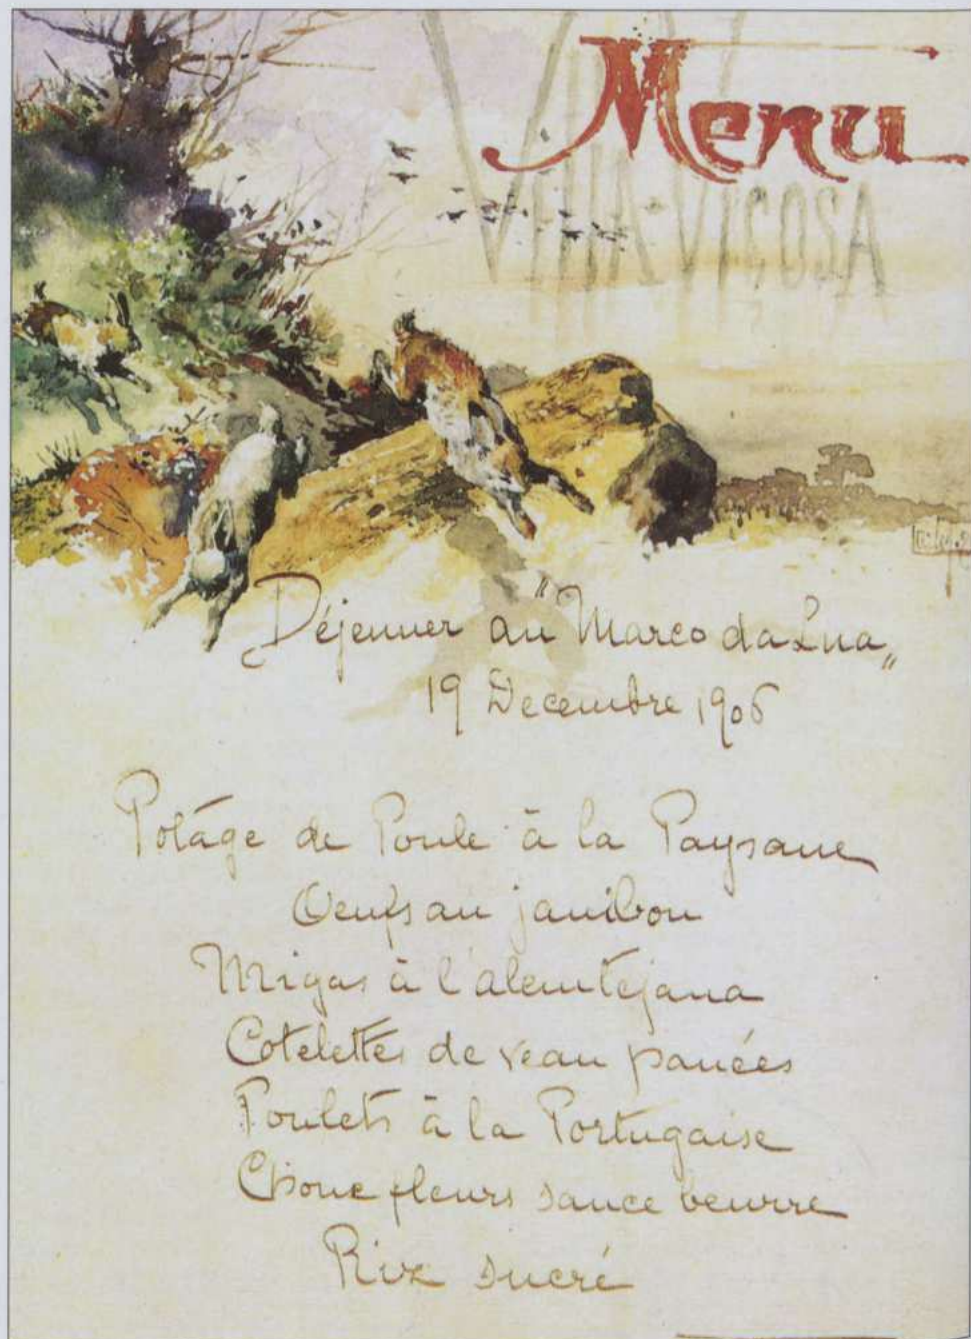 Menu
VILLA-VIÇOSA
Déjeuner au "Marco da Lua„
19 Decembre 1906
Potáge de Poule à la Paysane
Oeufs au jambon
Migas à l'alemtejana
Cotelettes de veau panées
Poulets à la Portugaise
Choux fleurs sauce beurre
Riz sucré